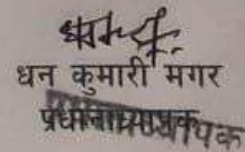 धन कुमारी मगर
प्रधानाध्यापक